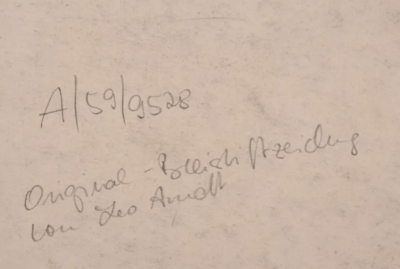 A/59/9528
Original-Bleistiftzeichng
von Leo Arndt